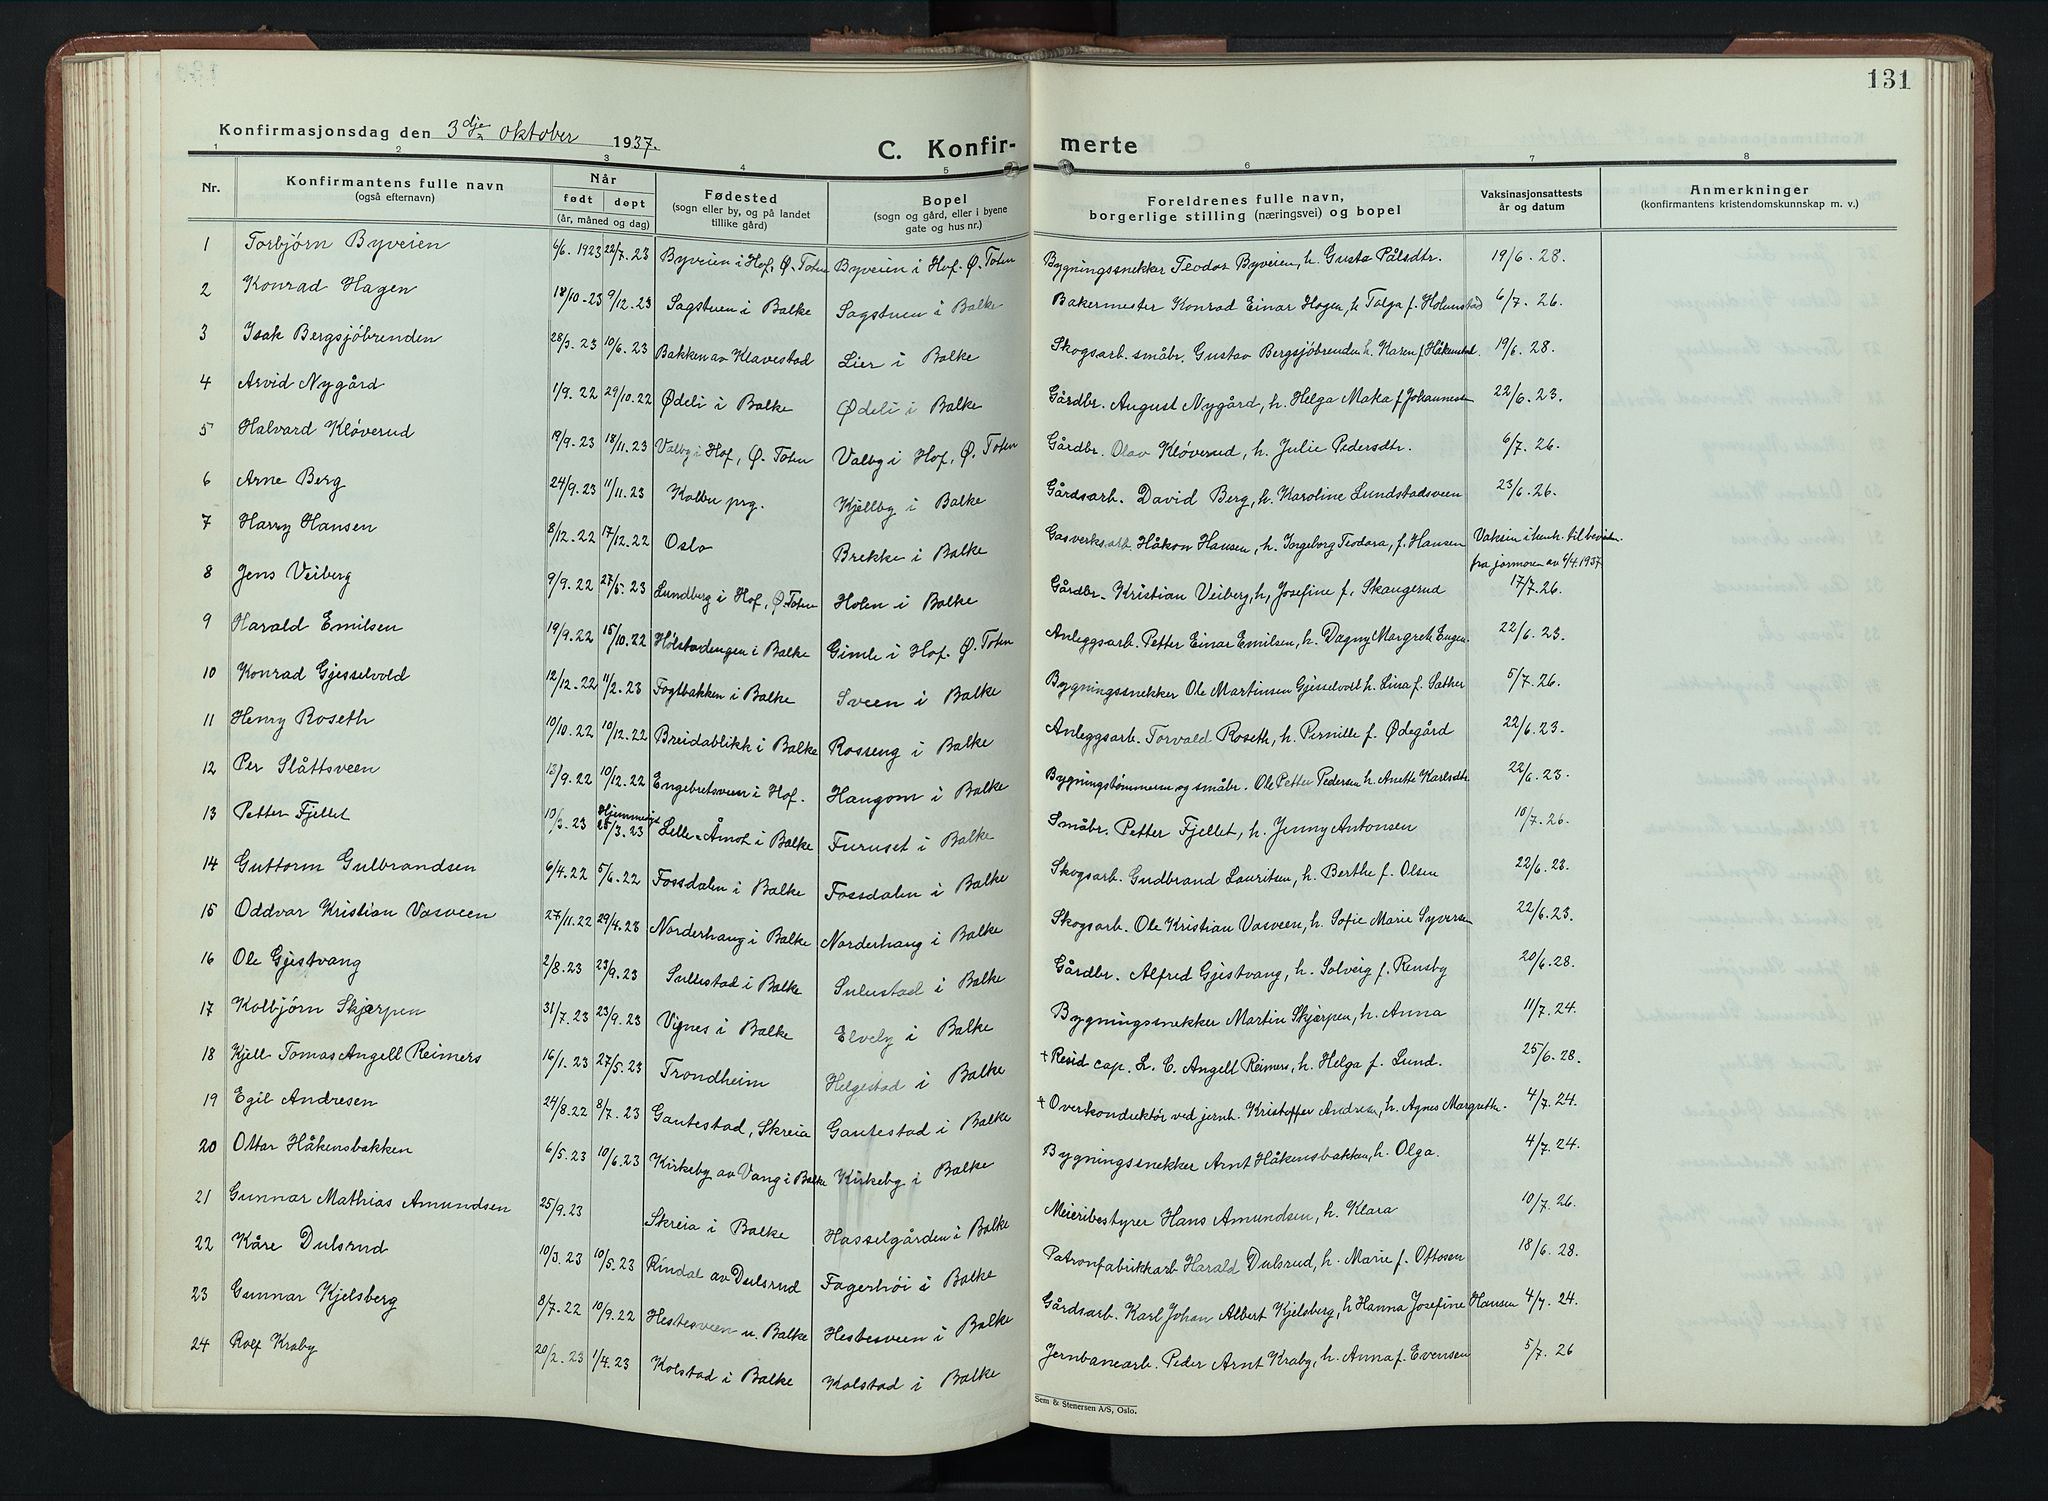 131
Konfirmasjonsdag den 3dje oktober 1937.
C. Konfir- merte
1 2 3 4 5 6 7 8
Nr. Konfirmantens fulle navn (også efternavn) Når født døpt (år, måned og dag) Fødested (sogn eller by, og på landet tillike gård) Bopel (sogn og gård, eller i byene gate og hus nr.) Foreldrenes fulle navn, borgerlige stilling (næringsvei) og bopel Vaksinasjonsattests år og datum Anmerkninger (konfirmantens kristendomskunnskap m. v.)
1 Torbjørn Byveien 6/6. 1923 22/7. 23 Byveien i Hof, Ø. Toten Byveien i Hof. Ø. Toten Bygningssnekker Teodor Byveien, h. Gusta Pålsdtr. 19/6. 28.
2 Konrad Hagen 18/10. 23 9/12. 23 Sagstuen i Balke Sagstuen i Balke Bakermester Konrad Einar Hagen, h. Tolga f. Holmstad 6/7. 26.
3 Isak Bergsjøbrenden 28/3. 23 10/6. 23 Bakken av Klavestad Lier i Balke Skogsarb. småbr. Gustav Bergsjøbrenden h. Karen f. Håkenstad. 19/6. 28.
4 Arvid Nygård 1/9. 22 29/10. 22 Ødeli i Balke Ødeli i Balke Gårdbr. August Nygård, h. Helga Maka f. Johannesen 22/6. 23.
5 Halvard Kløverud 19/9. 23 18/11. 23 Valby i Hof, Ø. Toten Valby i Hof, Ø. Toten Gårdbr. Olav Kløverud, h. Julie Pedersdtr. 6/7. 26.
6 Arne Berg 24/9. 23 11/11. 23 Kolbu prg. Kjellby i Balke Gårdsarb. David Berg, h. Karoline Lundstadsveen 23/6. 26.
7 Harry Hansen 8/12. 22 17/12. 22 Oslo Brekke i Balke Gasverksarb. Håkon Hansen, h. Ingeborg Teodora, f. Hansen Vaksin i henh. til bevidn. fra jormoren av 6/4. 1937
8 Jens Veiberg 9/9. 22 27/5. 23 Lundberg i Hof, Ø. Toten Holen i Balke Gårdbr. Kristian Veiberg, h, Josefine f. Skangerud 17/7. 26.
9 Harald Emilsen 19/9. 22 15/10. 22 Holstadengen i Balke Gimle i Hof. Ø. Toten Anleggsarb. Petter Einar Emilsen, h. Dagny Margrete Engen. 22/6. 23.
10 Konrad Gjesselvold 12/12. 22 11/2. 23 Fogtbakken i Balke Sveen i Balke Bygningssnekker Ole Martinsen Gjesselvold h. Lina f. Sæther 5/7. 26.
11 Henry Roseth 10/10. 22 10/12. 22 Breidablikk i Balke Rosseng i Balke Anleggsarb. Torvald Roseth, h. Pernille f. Ødegård 22/6. 23.
12 Per Slåttsveen 13/9. 22 10/12. 22 Engebretsveen i Hof. Hangom i Balke Bygningstømmerm og småbr. Ole Petter Pedersen h. Anette Karlsdtr 22/6. 23.
13 Petter Fjellet 10/3. 23 Hjemmedøpt 25/3. 23 Lille-Åmot i Balke Furuset i Balke Småbr. Petter Fjellet, h. Jenny Antonsen 10/7. 26.
14 Guttorm Gulbrandsen 6/4. 22 5/6. 22 Fossdalen i Balke Fossdalen i Balke Skogsarb. Gudbrand Lauritsen, h. Berthe f. Olsen 22/6. 23.
15 Oddvar Kristian Vasveen 27/11. 22 29/4. 23 Norderhaug i Balke Norderhaug i Balke Skogsarb. Ole Kristian Vasveen, h. Sofie Marie Syversen 22/6. 23.
16 Ole Gjestvang 2/8. 23 23/9. 23 Sullestad i Balke Sulestad i Balke Gårdbr. Alfred Gjestvang, h. Solveig f. Rensby 20/6. 28.
17 Kolbjørn Skjærpen 31/7. 23 23/9. 23 Vignes i Balke Elvely i Balke Bygningssnekker Martin Skjærpen, h. Anna 11/7. 24.
18 Kjell Tomas Angell Reimers 16/1. 23 27/5. 23 Trondheim Helgestad i Balke + Resid cap. L. C. Angell Reimers, h. Helga f. Lund. 25/6. 28.
19 Egil Andresen 24/8. 22 8/7. 23 Gantestad, Skreia Gantestad i Balke + Overkonduktør ved jernb. Kristoffer Andresen, h. Agnes Margrethe. 4/7. 24.
20 Ottar Håkensbakken 6/5. 23 10/6. 23 Kirkeby av Vang i Balke Kirkeby i Balke Bygningssnekker Arnt Håkensbakken, h. Olga. 4/7. 24.
21 Gunnar Mathias Amundsen 25/9. 23 Skreia i Balke Hasselgården i Balke Meieribestyrer Hans Amundsen, h. Klara 10/7. 26.
22 Kåre Dulsrud 10/3. 23 10/5. 23 Rindal av Dulsrud Fagerhøi i Balke Patronfabrikkarb Harald Dulsrud, h. Marie f. Ottosen 18/6. 28.
23 Gunnar Kjelsberg 8/7. 22 10/9. 22 Hestesveen u. Balke Hestesveen i Balke Gårdsarb. Karl Johan Albert Kjelsberg, h Hanna Josefine Hansen 4/7. 24.
24 Rolf Kraby 20/2. 23 1/4. 23 Kolstad i Balke Kolstad i Balke Jernbanearb. Peder Arnt Kraby, h. Anna f. Evensen 5/7. 26
Sem & Stenersen A/S, Oslo.